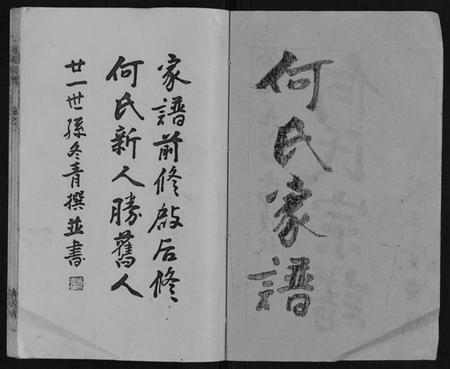 何氏家譜
家譜前修啟后修
何氏新人勝舊人
廿一世孫冬青撰並書